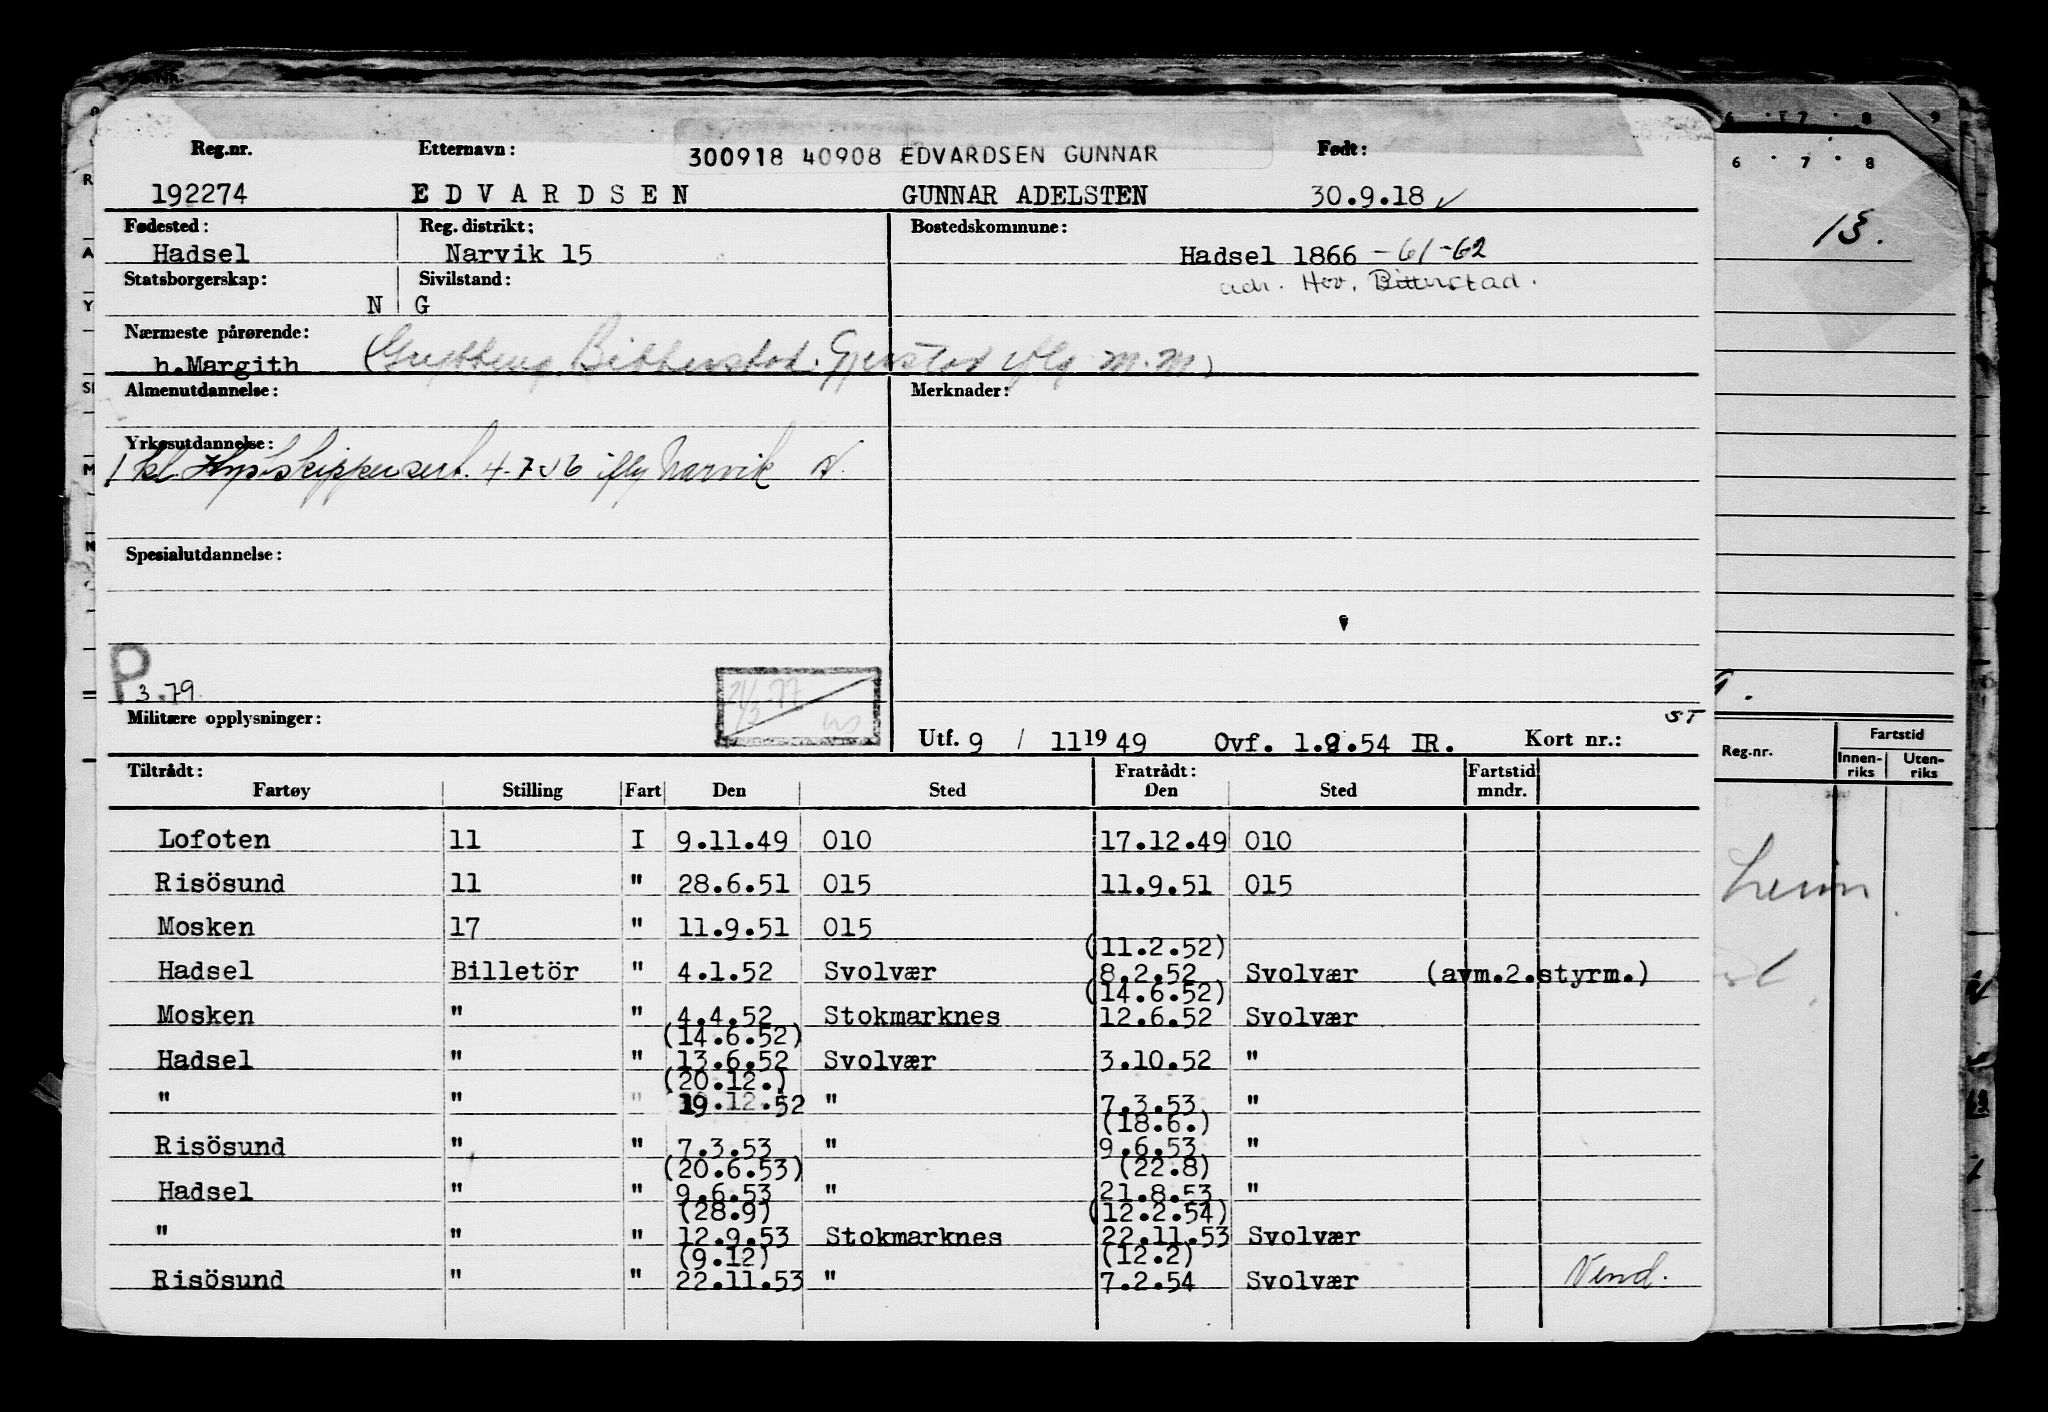 Reg.nr. Etternavn: 300918 40908 EDVARDSEN GUNNAR Født:
192274 EDVARDSEN GUNNAR ADELSTEN 30.9.18
Fødested: Reg. distrikt: Bostedskommune:
Hadsel Narvik 15 Hadsel 1866 -61-62
Statsborgerskap: Sivilstand: adr. Hov, Bitterstad.
N G
Nærmeste pårørende:
h.Margith
Almenutdannelse: Merknader:
Yrkesutdannelse:
1 kl. Kystskippersert. 4-7-56 Narvik
Spesialutdannelse:
P
3.79.
Militære opplysninger: ST
Utf. 9 / 11 19 49 Ovf. 1.9.54 IR. Kort nr.:
Tiltrådt: Fratrådt: Fartstid
Fartøy Stilling Fart Den Sted Den Sted mndr.
Lofoten 11 I 9.11.49 010 17.12.49 010
Risösund 11 " 28.6.51 015 11.9.51 015
Mosken 17 " 11.9.51 015
(11.2.52)
Hadsel Billetör " 4.1.52 Svolvær 8.2.52 Svolvær (avm.2.styrm.)
(14.6.52)
Mosken " " 4.4.52 Stokmarknes 12.6.52 Svolvær
(14.6.52)
Hadsel " " 13.6.52 Svolvær 3.10.52 "
(20.12.)
" " " 19.12.52 " 7.3.53 "
(18.6.)
Risösund " " 7.3.53 " 9.6.53 "
(20.6.53) (22.8)
Hadsel " " 9.6.53 " 21.8.53 "
(28.9) (12.2.54)
" " " 12.9.53 Stokmarknes 22.11.53 Svolvær
(9.12) (12.2)
Risösund " " 22.11.53 " 7.2.54 Svolvær Vend.
6 7 8 9
6 7 8
13.
Reg.nr. Fartstid
Innen-riks Uten-riks